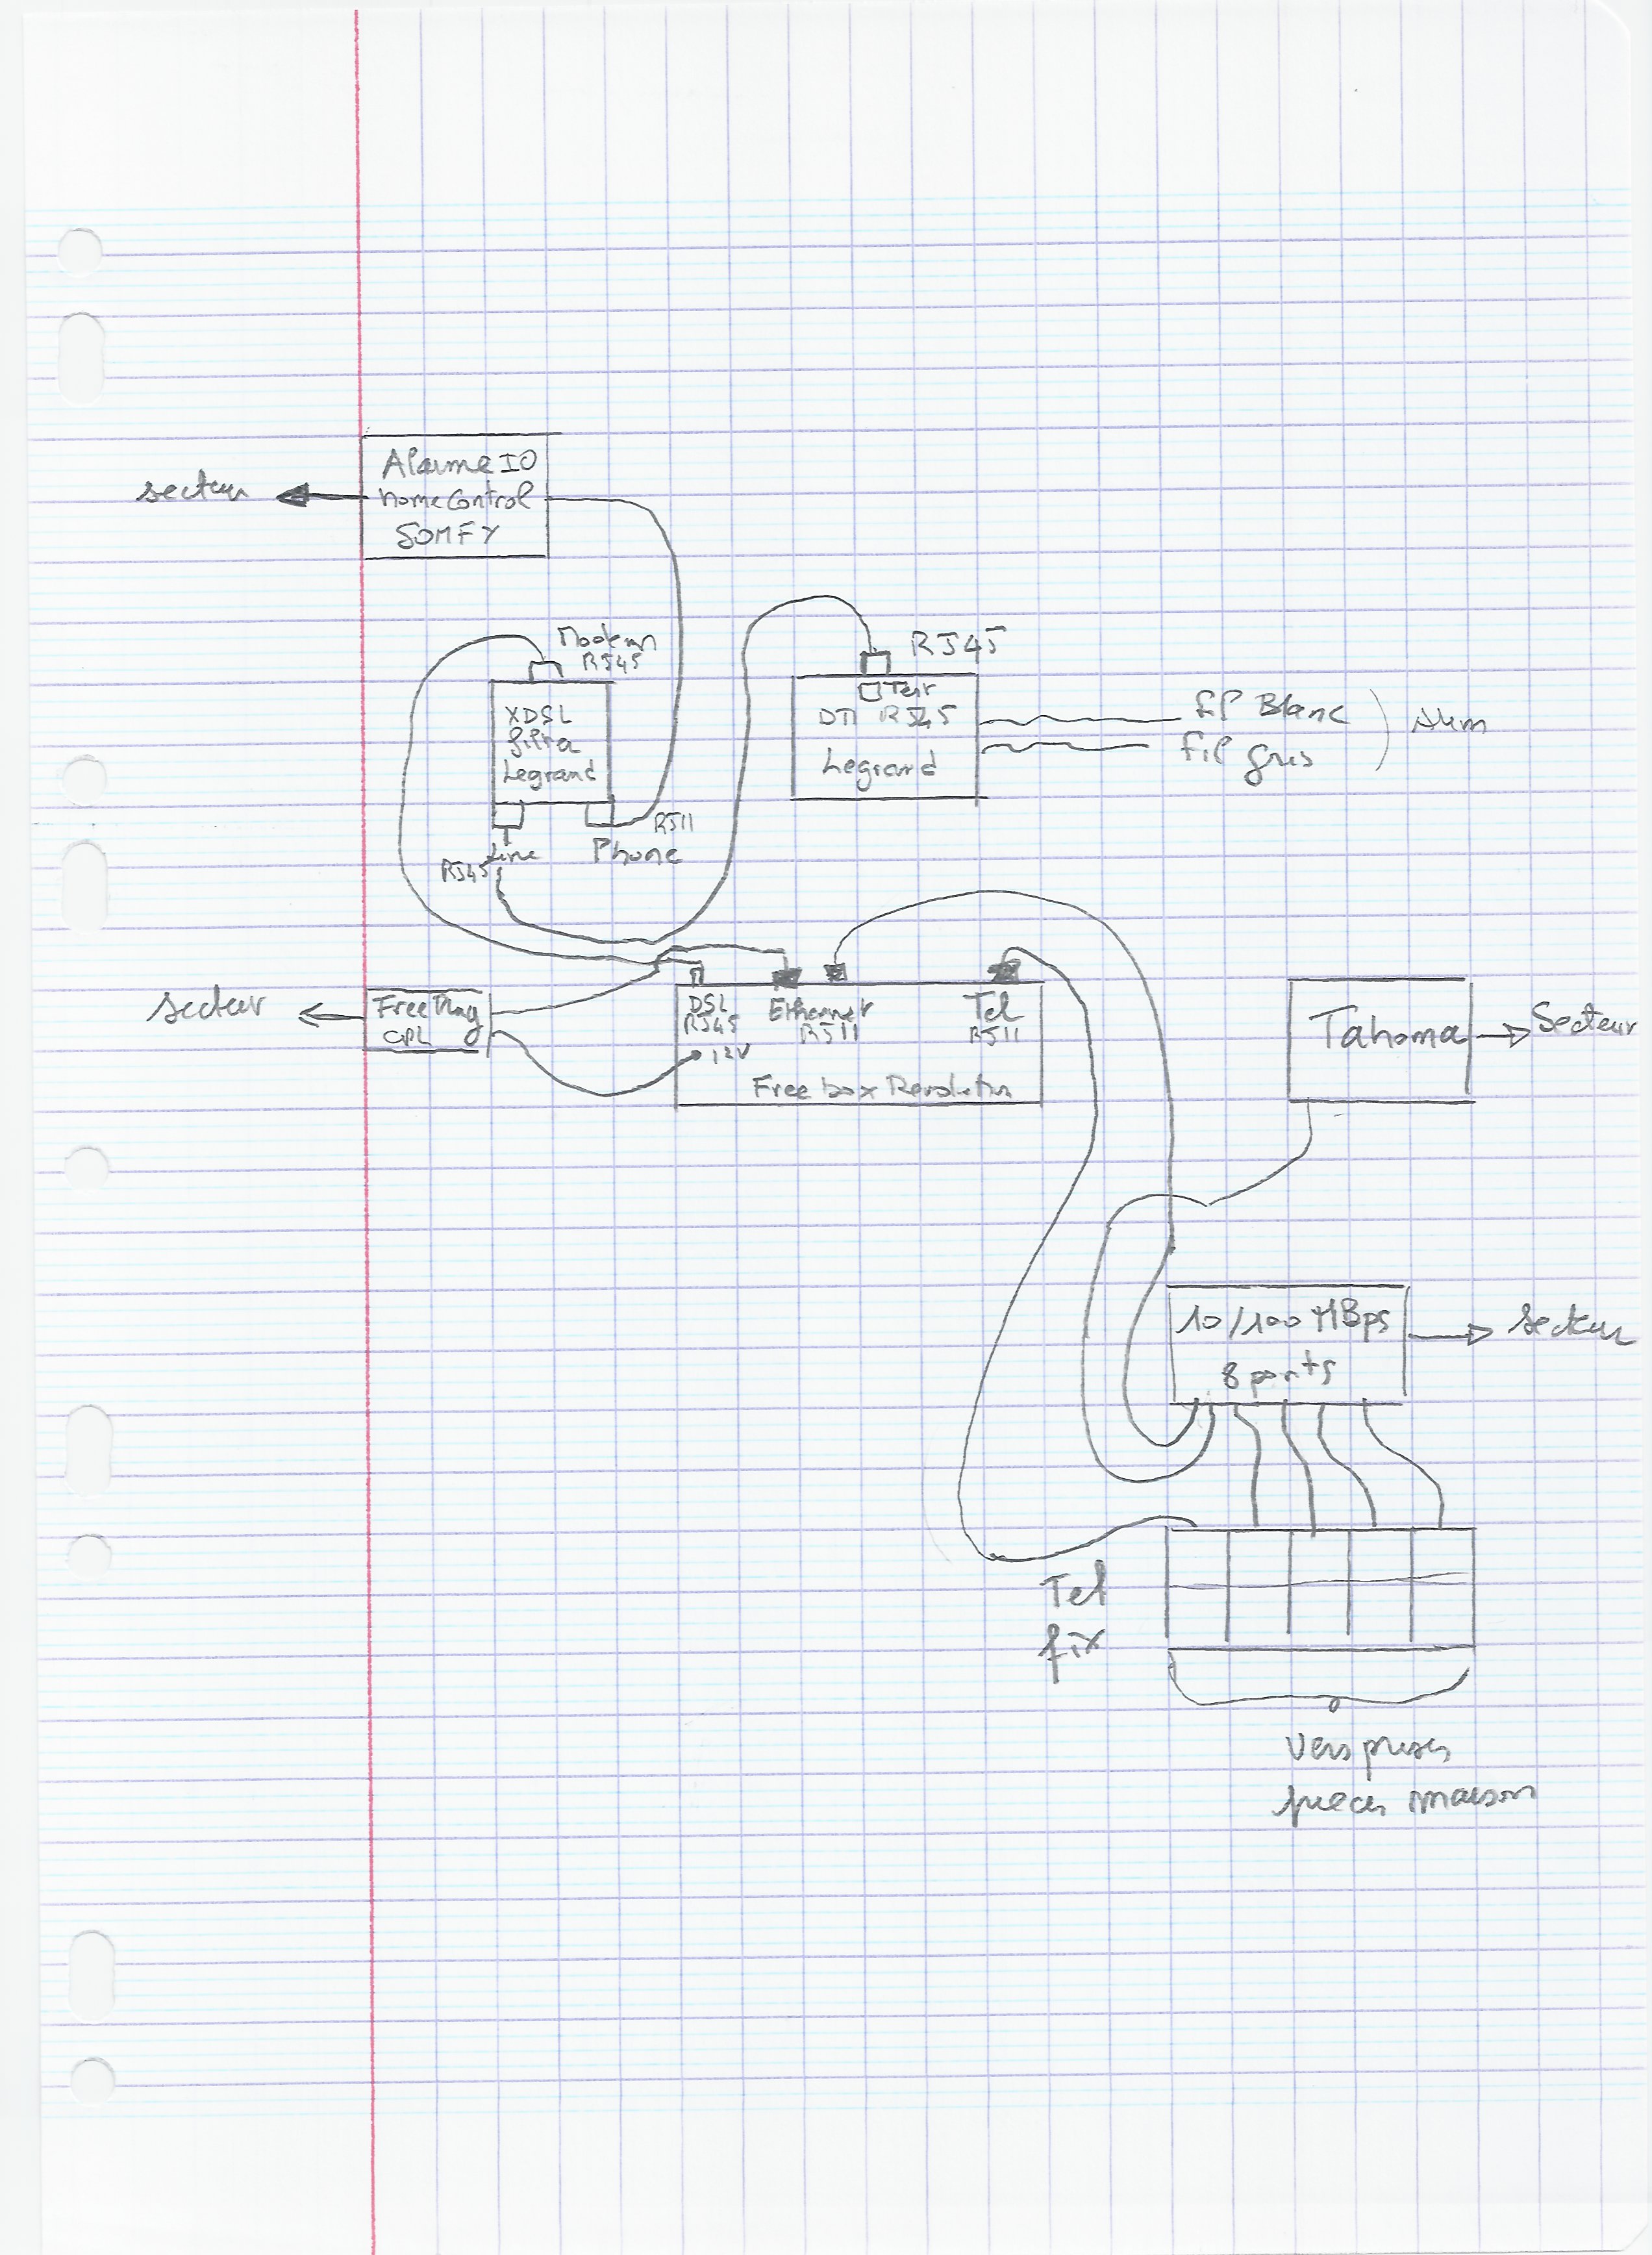 Alarme IO
secteur
HomeControl
SOMFY
Modem
RJ45
RJ45
Test
XDSL
filtre
Legrand
DTI RJ45
Legrand
fil Blanc
fil gris
RJ11
Line
Phone
RJ45
secteur
FreePlug
CPL
DSL
RJ45
Ethernet
RJ11
Tel
RJ11
12V
Freebox Revolution
Tahoma
Secteur
10/100 MBps
8 ports
secteur
Tel
fix
Vers prises
pieces maison